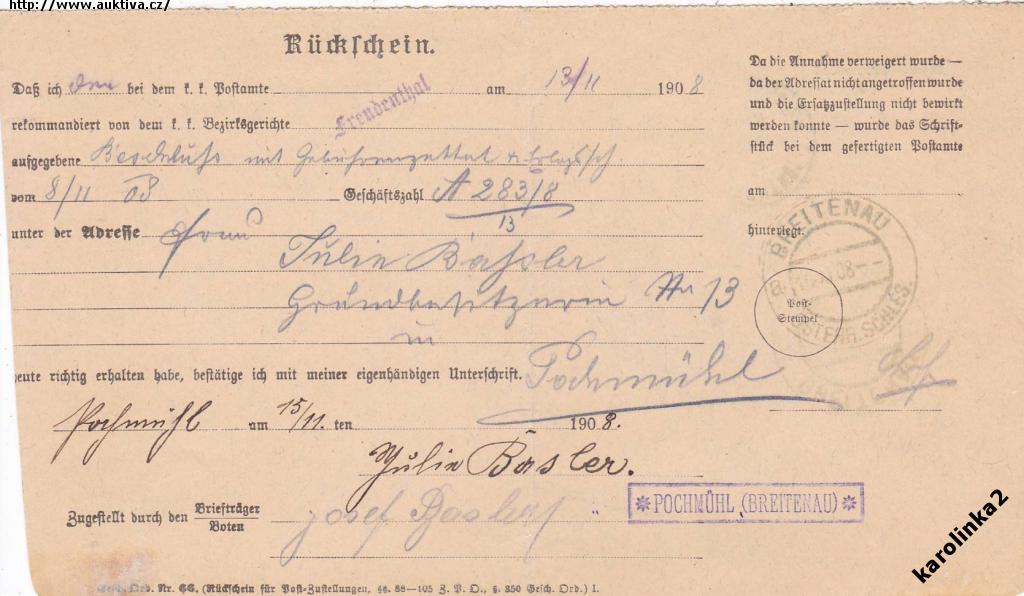 http://www.auktiva.cz/
Rückschein.
Daß ich den bei dem k. k. Postamte am 13/11 1908
Freudenthal
rekommandiert von dem k. k. Bezirksgerichte
aufgegebene Beschluss mit
vom 8/11 08 Geschäftszahl A 283/8
13
unter der Adresse Frau
Julie Bassler
Grundbesitzerin Nr 13
in
Pochmühl
heute richtig erhalten habe, bestätige ich mit meiner eigenhändigen Unterschrift.
Pochmühl am 15/11. ten 1908.
Julie Basler.
Zugestellt durch den Briefträger
Boten
Josef Basler
POCHMÜHL (BREITENAU)
Ord. Nr. 66. (Rückschein für Post-Zustellungen, §§. 88—105 Z. P. O., §. 350 Gesch. Ord.) I.
Da die Annahme verweigert wurde —
da der Adressat nicht angetroffen wurde
und die Ersatzzustellung nicht bewirkt
werden konnte — wurde das Schrift-
stück bei dem gefertigten Postamte
am
hinterlegt.
BREITENAU
ÖSTERR. SCHLES.
Post-
Stempel
karolinka2